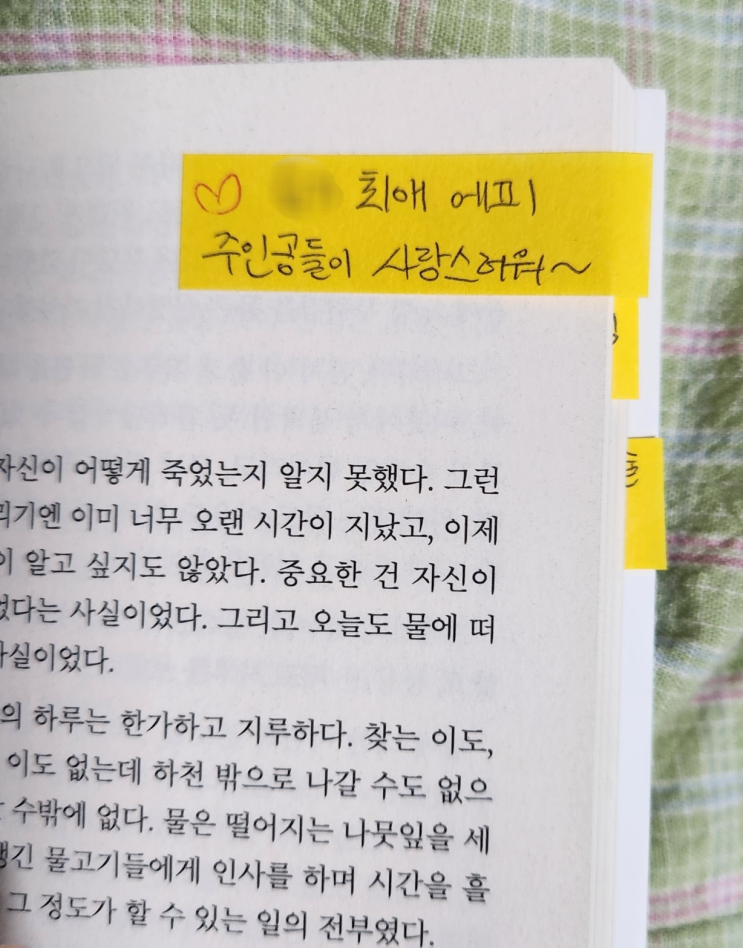 최애 에피
주인공들이 사랑스러워~
자신이 어떻게 죽었는지 알지 못했다. 그런
이미 너무 오랜 시간이 지났고, 이제
알고 싶지도 않았다. 중요한 건 자신이
사실이었다. 그리고 오늘도 물에 떠
사실이었다.
의 하루는 한가하고 지루하다. 찾는 이도,
이도 없는데 하천 밖으로 나갈 수도 없으
수밖에 없다. 물은 떨어지는 나뭇잎을 세
물고기들에게 인사를 하며 시간을 흘
그 정도가 할 수 있는 일의 전부였다.